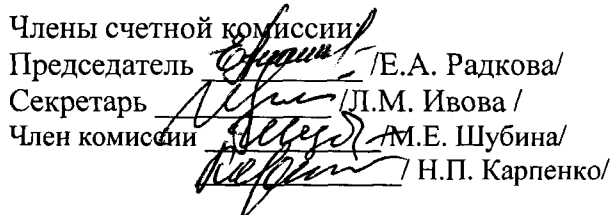 Члены счетной комиссии:
Председатель /Е.А. Радкова/
Секретарь /Л.М. Ивова /
Член комиссии /М.Е. Шубина/
/ Н.П. Карпенко/